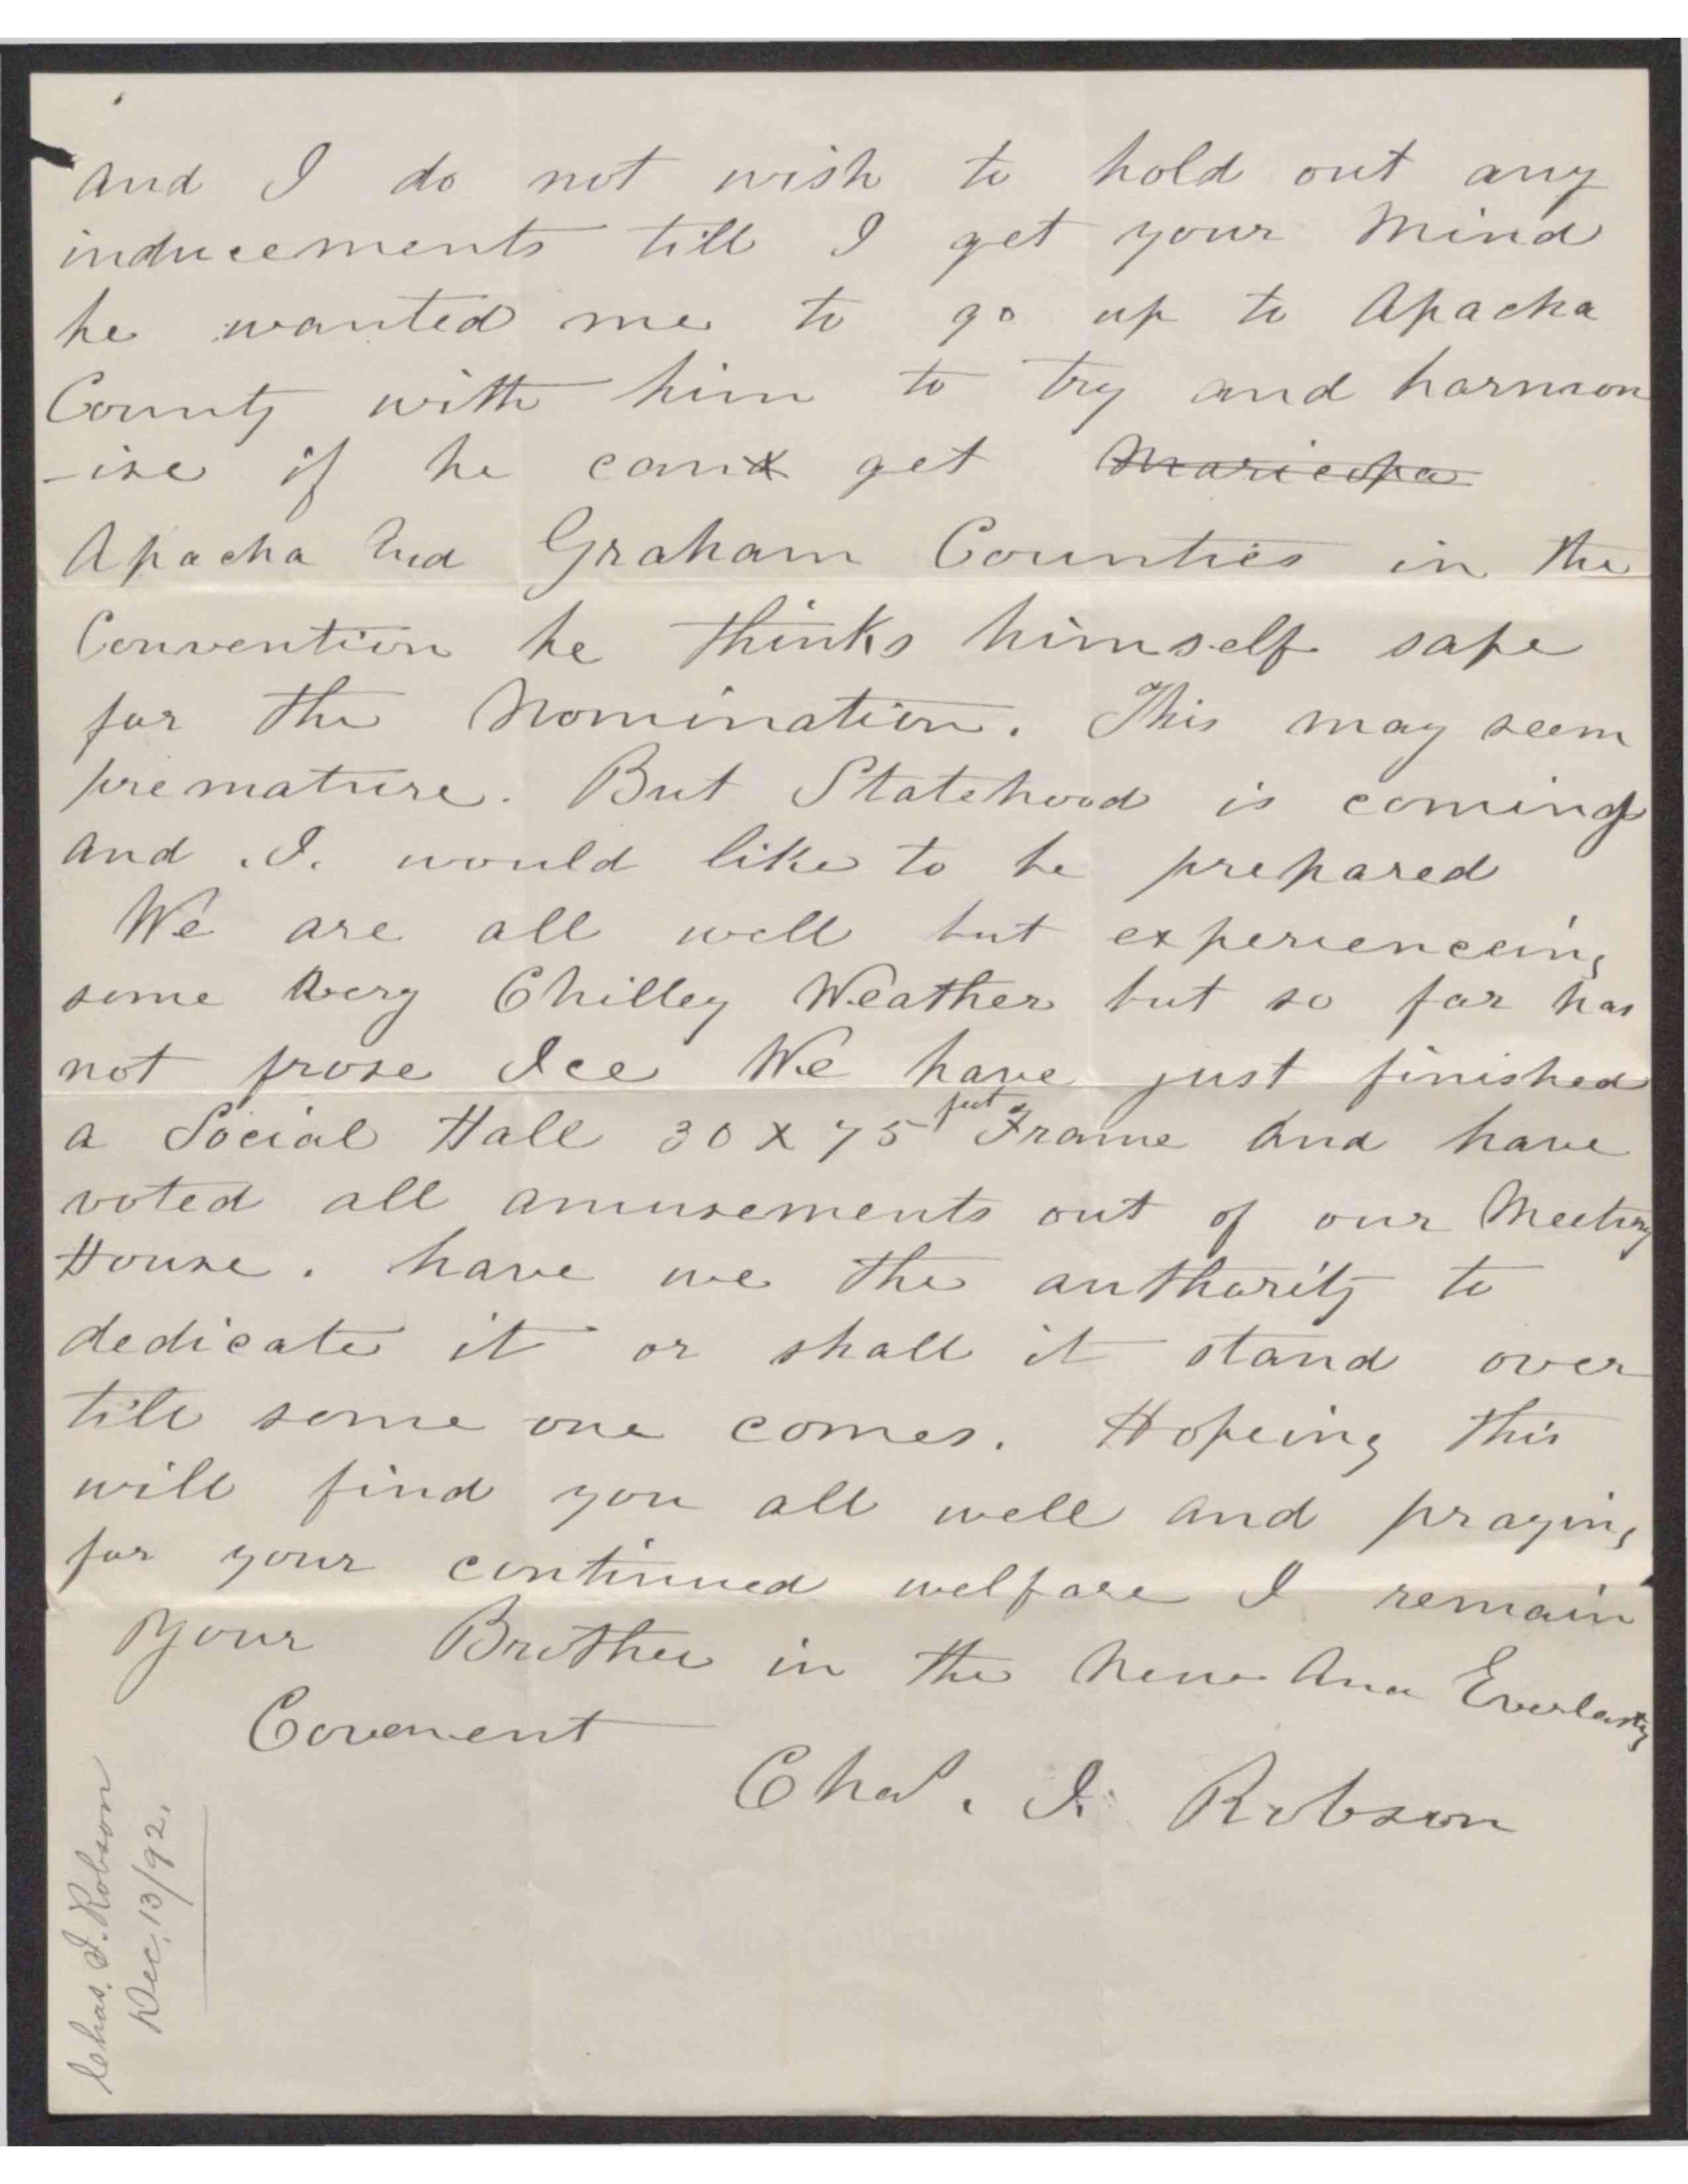 and I do not wish to hold out any
inducements till I get your Mind
he wanted me to go up to Apacha
County with him to try and harmon
-ise if he can get Maricopa
Apacha And Graham Counties in the
Convention he thinks himself safe
for the Nomination. This may seem
premature. But Statehood is coming
and .I. would like to be prepared
We are all well but experienceing
some very Chilley Weather but so far has
not frose Ice We have just finished
a Social Hall 30 X 75 feet Frame And have
voted all amusements out of our Meeting
House. have we the authority to
dedicate it or shall it stand over
till some one comes. Hopeing this
will find you all well and praying
for your continued welfare I remain
Your Brother in the New And Everlasting
Covenent
Chas. I. Robson
Chas. I. Robson
Dec. 13/92.